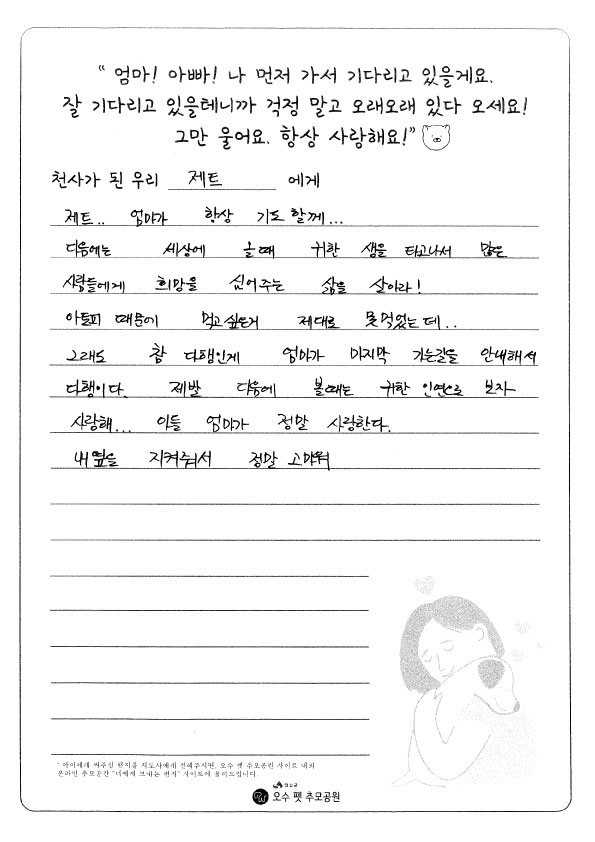 “ 엄마! 아빠! 나 먼저 가서 기다리고 있을게요.
잘 기다리고 있을테니까 걱정 말고 오래오래 있다 오세요!
그만 울어요. 항상 사랑해요!”
천사가 된 우리 제트 에게
제트.. 엄마가 항상 기도 할께...
다음에는 세상에 올때 귀한 생을 타고나서 많은
사람들에게 희망을 심어주는 삶을 살아라!
아토피 때문에 먹고싶은거 제대로 못먹었는데..
그래도 참 다행인게 엄마가 마지막 가는길을 안내해서
다행이다. 제발 다음에 볼때는 귀한 인연으로 보자
사랑해... 아들 엄마가 정말 사랑한다.
내 옆을 지켜줘서 정말 고마워
* 아이에게 써주신 편지를 지도사에게 전해주시면, 오수 펫 추모공원 사이트 내의
온라인 추모공간 "너에게 보내는 편지" 사이트에 올려드립니다.
오수 펫 추모공원